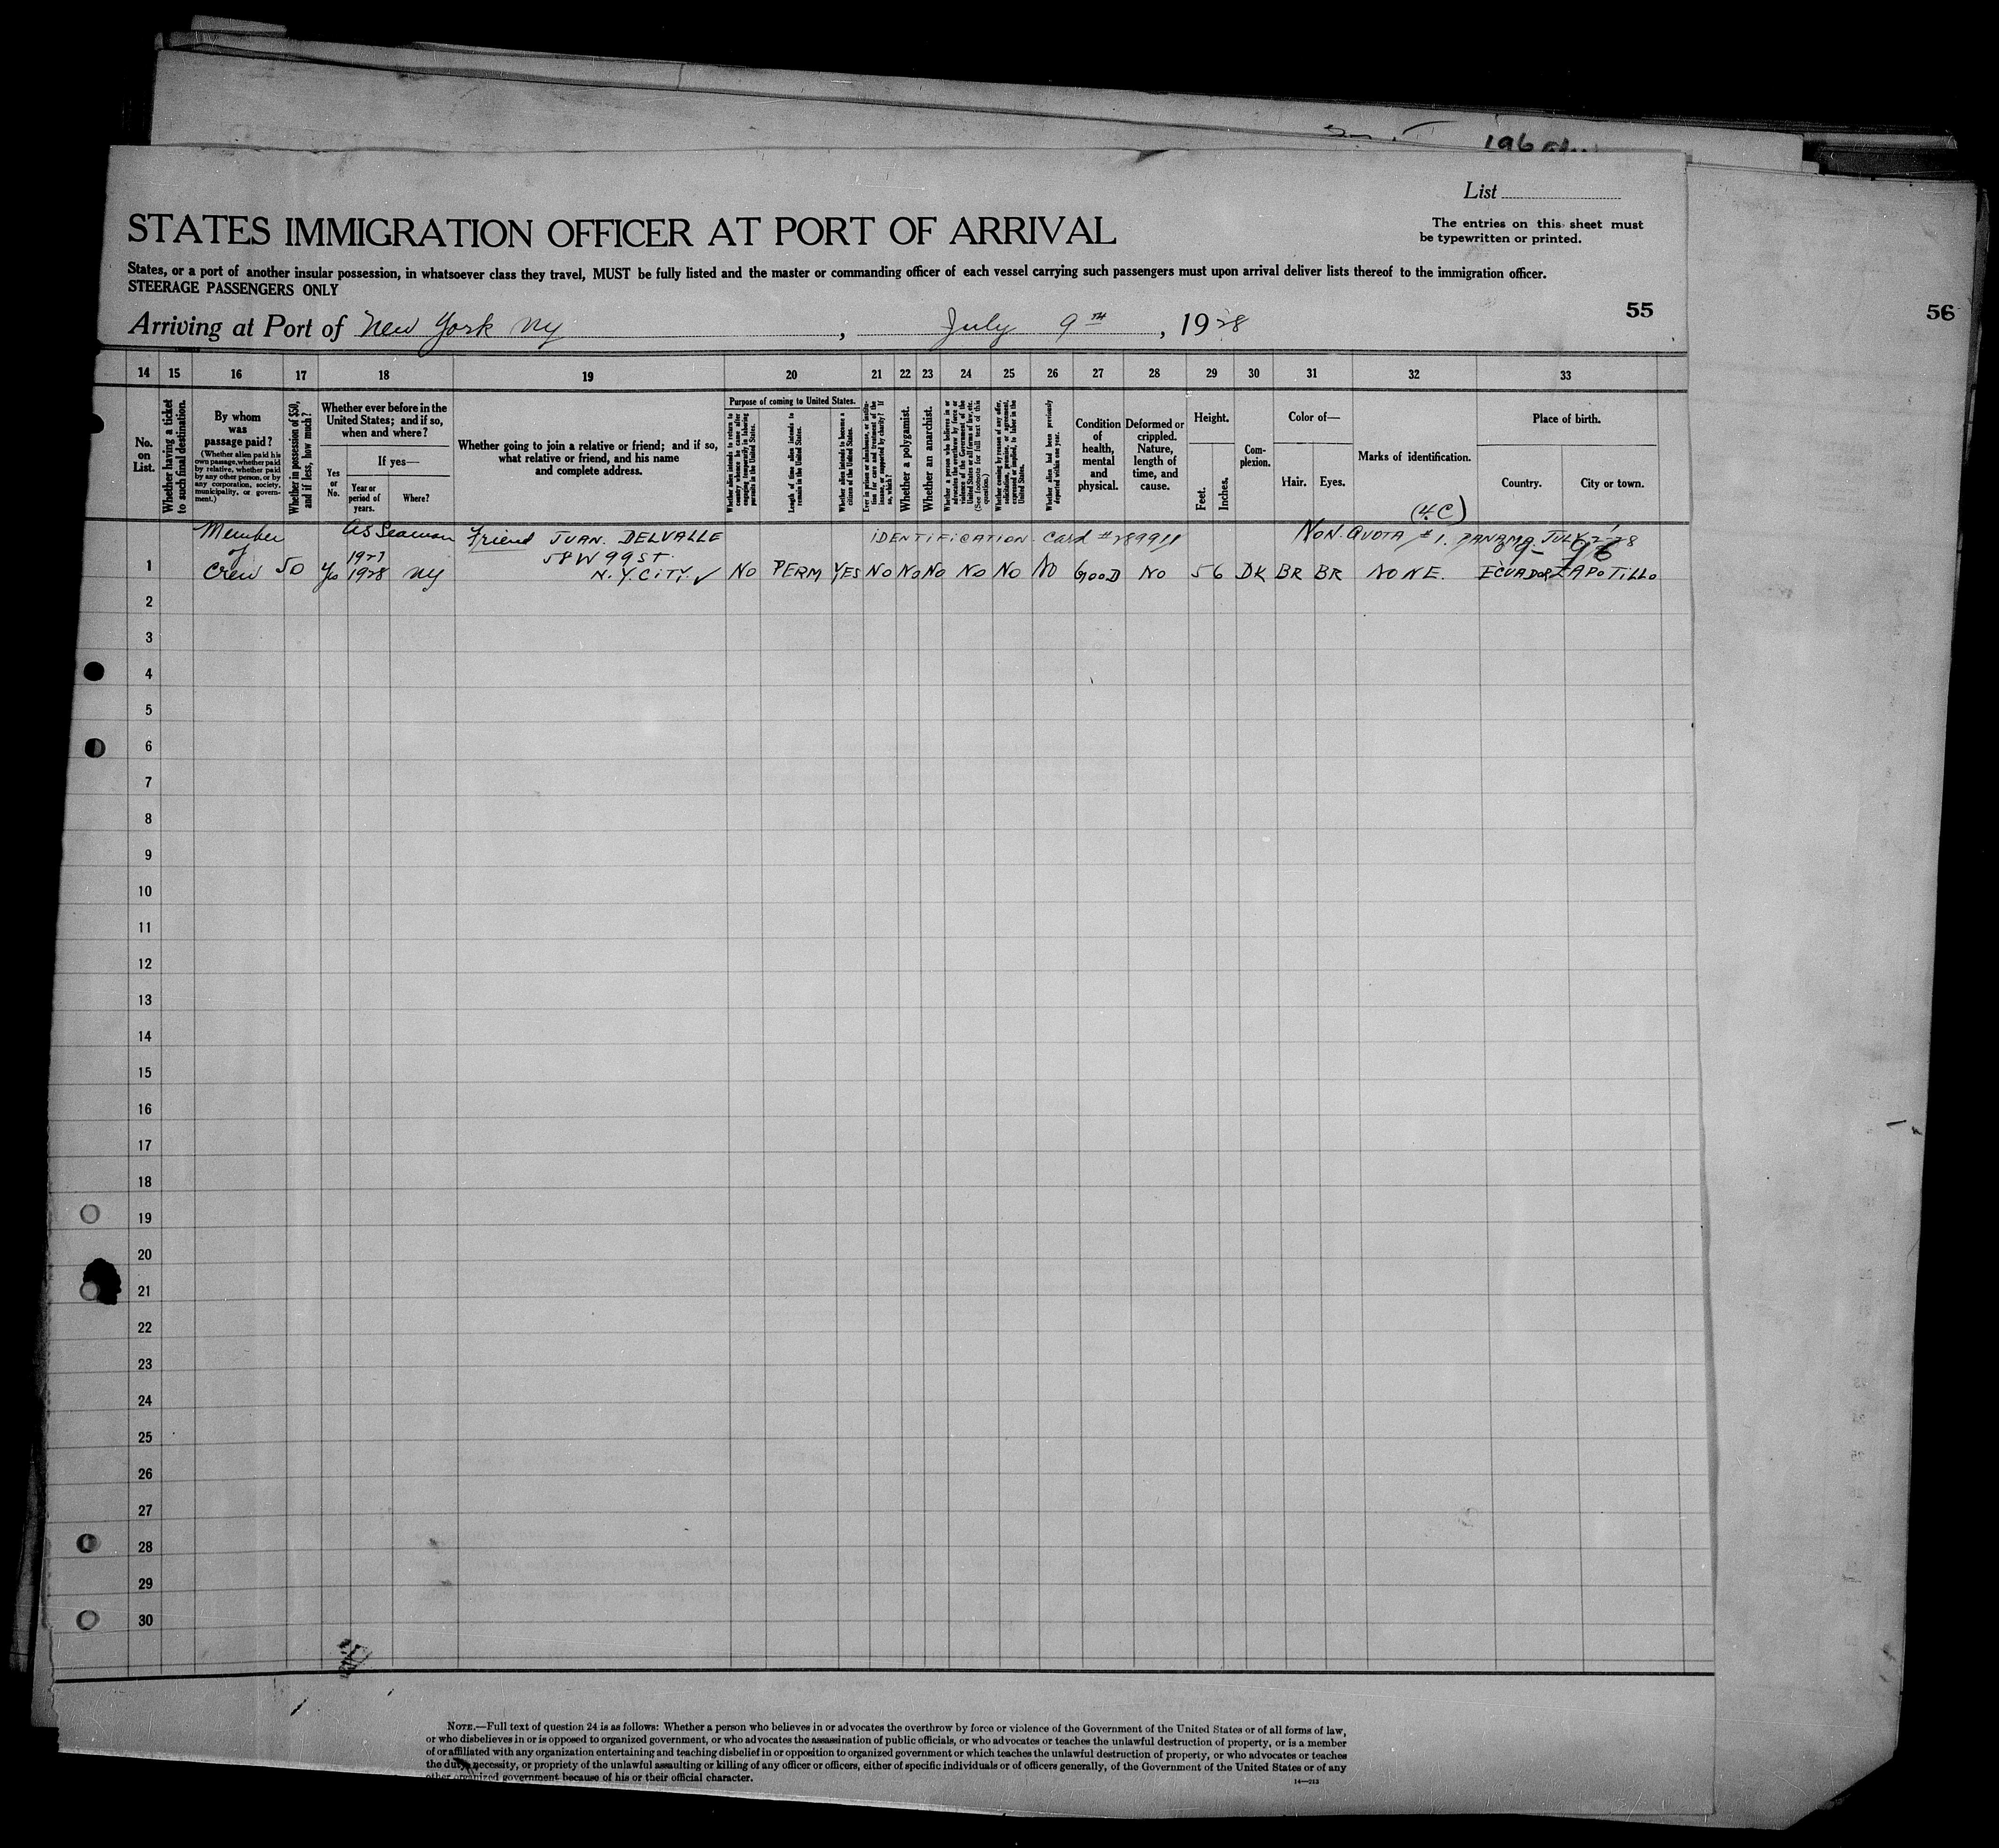 List
STATES IMMIGRATION OFFICER AT PORT OF ARRIVAL
The entries on this sheet must
be typewritten or printed.
States, or a port of another insular possession, in whatsoever class they travel, MUST be fully listed and the master or commanding officer of each vessel carrying such passengers must upon arrival deliver lists thereof to the immigration officer.
STEERAGE PASSENGERS ONLY
55
56
Arriving at Port of New York NY, July 9TH, 1928
14 15 16 17 18 19 20 21 22 23 24 25 26 27 28 29 30 31 32 33
No. on List.
Whether having a ticket to such final destination.
By whom was passage paid?
(Whether alien paid his own passage, whether paid by relative, whether paid by any other person, or by any corporation, society, municipality, or government.)
Whether in possession of $50, and if less, how much?
Whether ever before in the United States; and if so, when and where?
If yes—
Yes or No.
Year or period of years.
Where?
Whether going to join a relative or friend; and if so, what relative or friend, and his name and complete address.
Purpose of coming to United States.
Whether alien intends to return to country whence he came after engaging temporarily in laboring pursuits in the United States.
Length of time alien intends to remain in the United States.
Whether alien intends to become a citizen of the United States.
Ever in prison or almshouse, or institution for care and treatment of the insane, or supported by charity? If so, which?
Whether a polygamist.
Whether an anarchist.
Whether a person who believes in or advocates the overthrow by force or violence of the Government of the United States or all forms of law, etc. (See footnote for full text of this question.)
Whether coming by reason of any offer, solicitation, promise, or agreement, expressed or implied, to labor in the United States.
Whether alien had been previously deported within one year.
Condition of health, mental and physical.
Deformed or crippled. Nature, length of time, and cause.
Height.
Feet.
Inches.
Complexion.
Color of—
Hair. Eyes.
Marks of identification.
Place of birth.
Country. City or town.
(4.C)
Member As Seaman Friend JUAN. DELVALLE IDENTIFICATION Card #289911 NON. QUOTA #1. PANAMA. JULY 2-28
of 1927 58 W 99 ST.
1 Crew 50 Yes 1928 NY N.Y. CITY ✓ NO PERM YES NO NO NO NO NO NO GOOD NO 5 6 DK BR BR NONE. ECUADOR ZAPOTILLO
2
3
4
5
6
7
8
9
10
11
12
13
14
15
16
17
18
19
20
21
22
23
24
25
26
27
28
29
30
NOTE.—Full text of question 24 is as follows: Whether a person who believes in or advocates the overthrow by force or violence of the Government of the United States or of all forms of law,
or who disbelieves in or is opposed to organized government, or who advocates the assassination of public officials, or who advocates or teaches the unlawful destruction of property, or is a member
of or affiliated with any organization entertaining and teaching disbelief in or opposition to organized government or which teaches the unlawful destruction of property, or who advocates or teaches
the duty, necessity, or propriety of the unlawful assaulting or killing of any officer or officers, either of specific individuals or of officers generally, of the Government of the United States or of any
other organized government because of his or their official character.
14—213